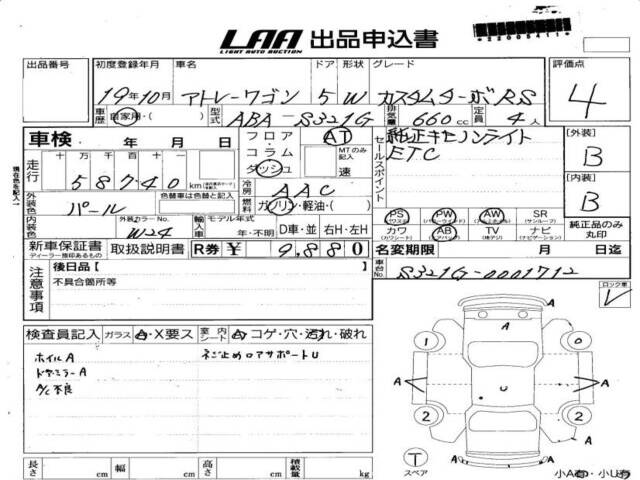 LAA 出品申込書
LIGHT AUTO AUCTION
出品番号 初度登録年月 車名 ドア 形状 グレード 評価点
19年10月 アトレーワゴン 5 W カスタムターボRS 4
車歴 自家用・( ) 型式 ABA-S321G 排気量 660cc 定員 4人
車検 年 月 日 フロア・コラム・ダッシュ AT MTのみ記入 速
セールスポイント 純正キセノンライト
ETC
[外装] B
[内装] B
現在色を記入
走行 十 万 千 百 十 一
58740 km
冷房 AAC
外装色 パール 色替車は色替と記入 燃料 ガソリン・軽油・( )
内装色 外装カラーNo. W24 輸入車 モデル年式 年・不明 D車・並 右H・左H
PS PW AW SR (サンルーフ)
カワ (カワシート) AB (エアバック) TV ナビ (ナビゲーション)
純正品のみ丸印
新車保証書 ディーラー捺印あるもの 取扱説明書 R券 ¥ 9,880 名変期限 月 日迄
車台No. S321G-0001712
注意事項 後日品[ ]
不具合箇所等
ロック車
検査員記入 ガラス A・X要ス 室内シート A コゲ・穴・汚れ・破れ
ホイルA ネジ止めロアサポートU
ドアミラーA
A/C不良
A
1 0
A A A
U
2 2
A A
T
スペア
小A有・小U有
長さ cm 幅 cm 高さ cm 積載量 kg